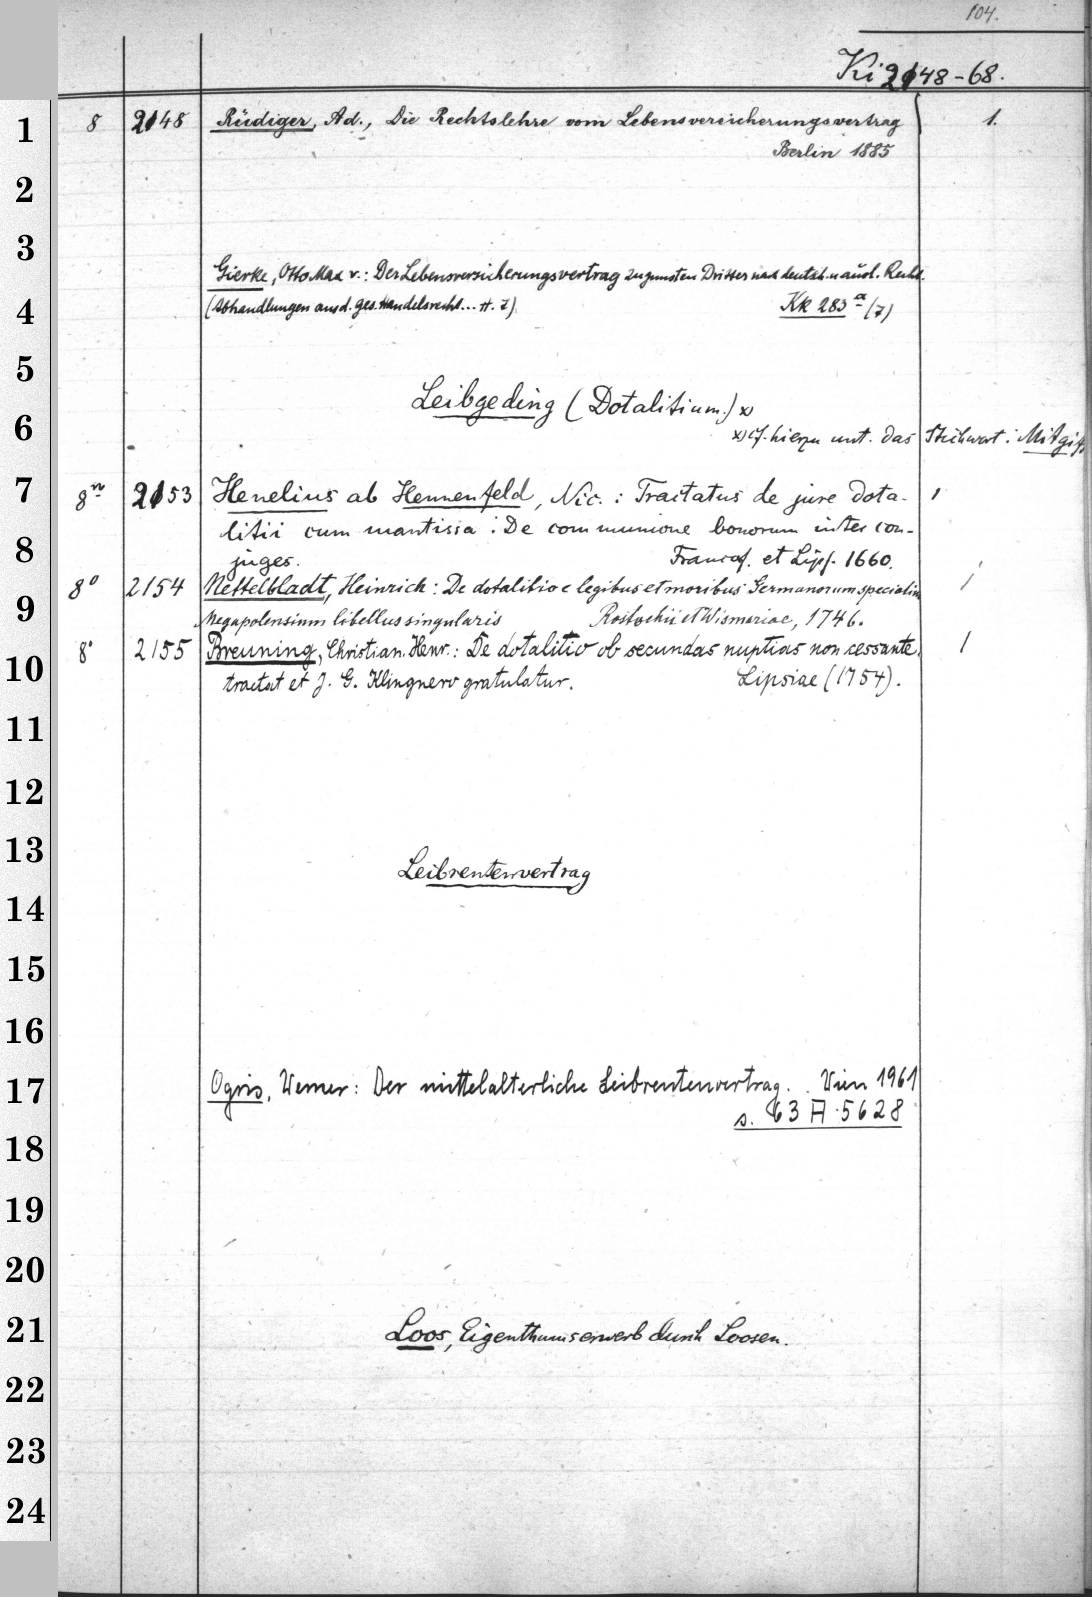 104.
Ki 2148-68.
1 8 2148 Rüdiger, Ad., Die Rechtslehre vom Lebensversicherungsvertrag 1.
Berlin 1885
2
3
Gierke, Otto Max v.: Der Lebensversicherungsvertrag zugunsten Dritter nach deutsch. u. ausl. Recht.
4 (Abhandlungen aus d. ges. Handelsrecht... H. 7) Kk 283 a/(7)
5
Leibgeding (Dotalitium.) x)
6 x) cf. hierzu unt. das Stichwort: Mitgift.
7 8n 2153 Henelius ab Hennenfeld, Nic.: Tractatus de jure dota- 1
litii cum mantissa: De communione bonorum inter con-
8 juges. Francof. et Lips. 1660.
8° 2154 Nettelbladt, Heinrich: De dotalitio e legibus et moribus Germanorum speciatim 1
9 Megapolensium libellus singularis Rostochii et Wismariae, 1746.
8° 2155 Breuning, Christian. Henr.: De dotalitio ob secundas nuptias non cessante, 1
10 tractat et J. G. Klingnero gratulatur. Lipsiae (1754).
11
12
13
Leibrentenvertrag
14
15
16
17 Ogris, Werner: Der mittelalterliche Leibrentenvertrag. Wien 1961
s. 63 A 5628
18
19
20
21 Loos, Eigenthumserwerb durch Loosen.
22
23
24